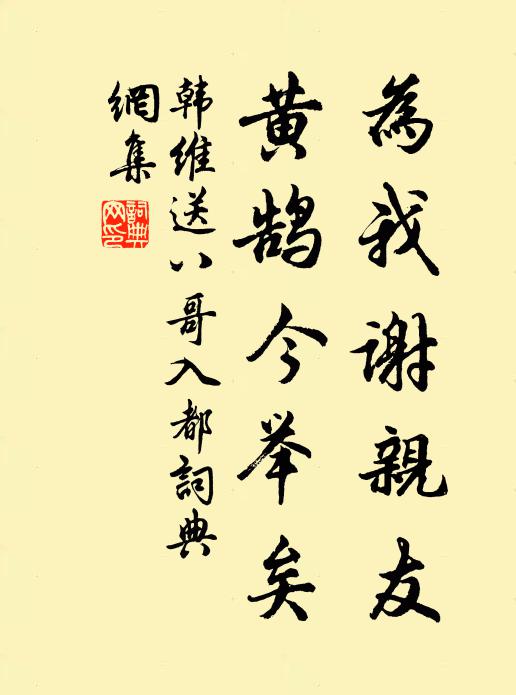 為我謝親友
黄鹄今举矣
韩維送八哥入都詞典
網集
詞典網印